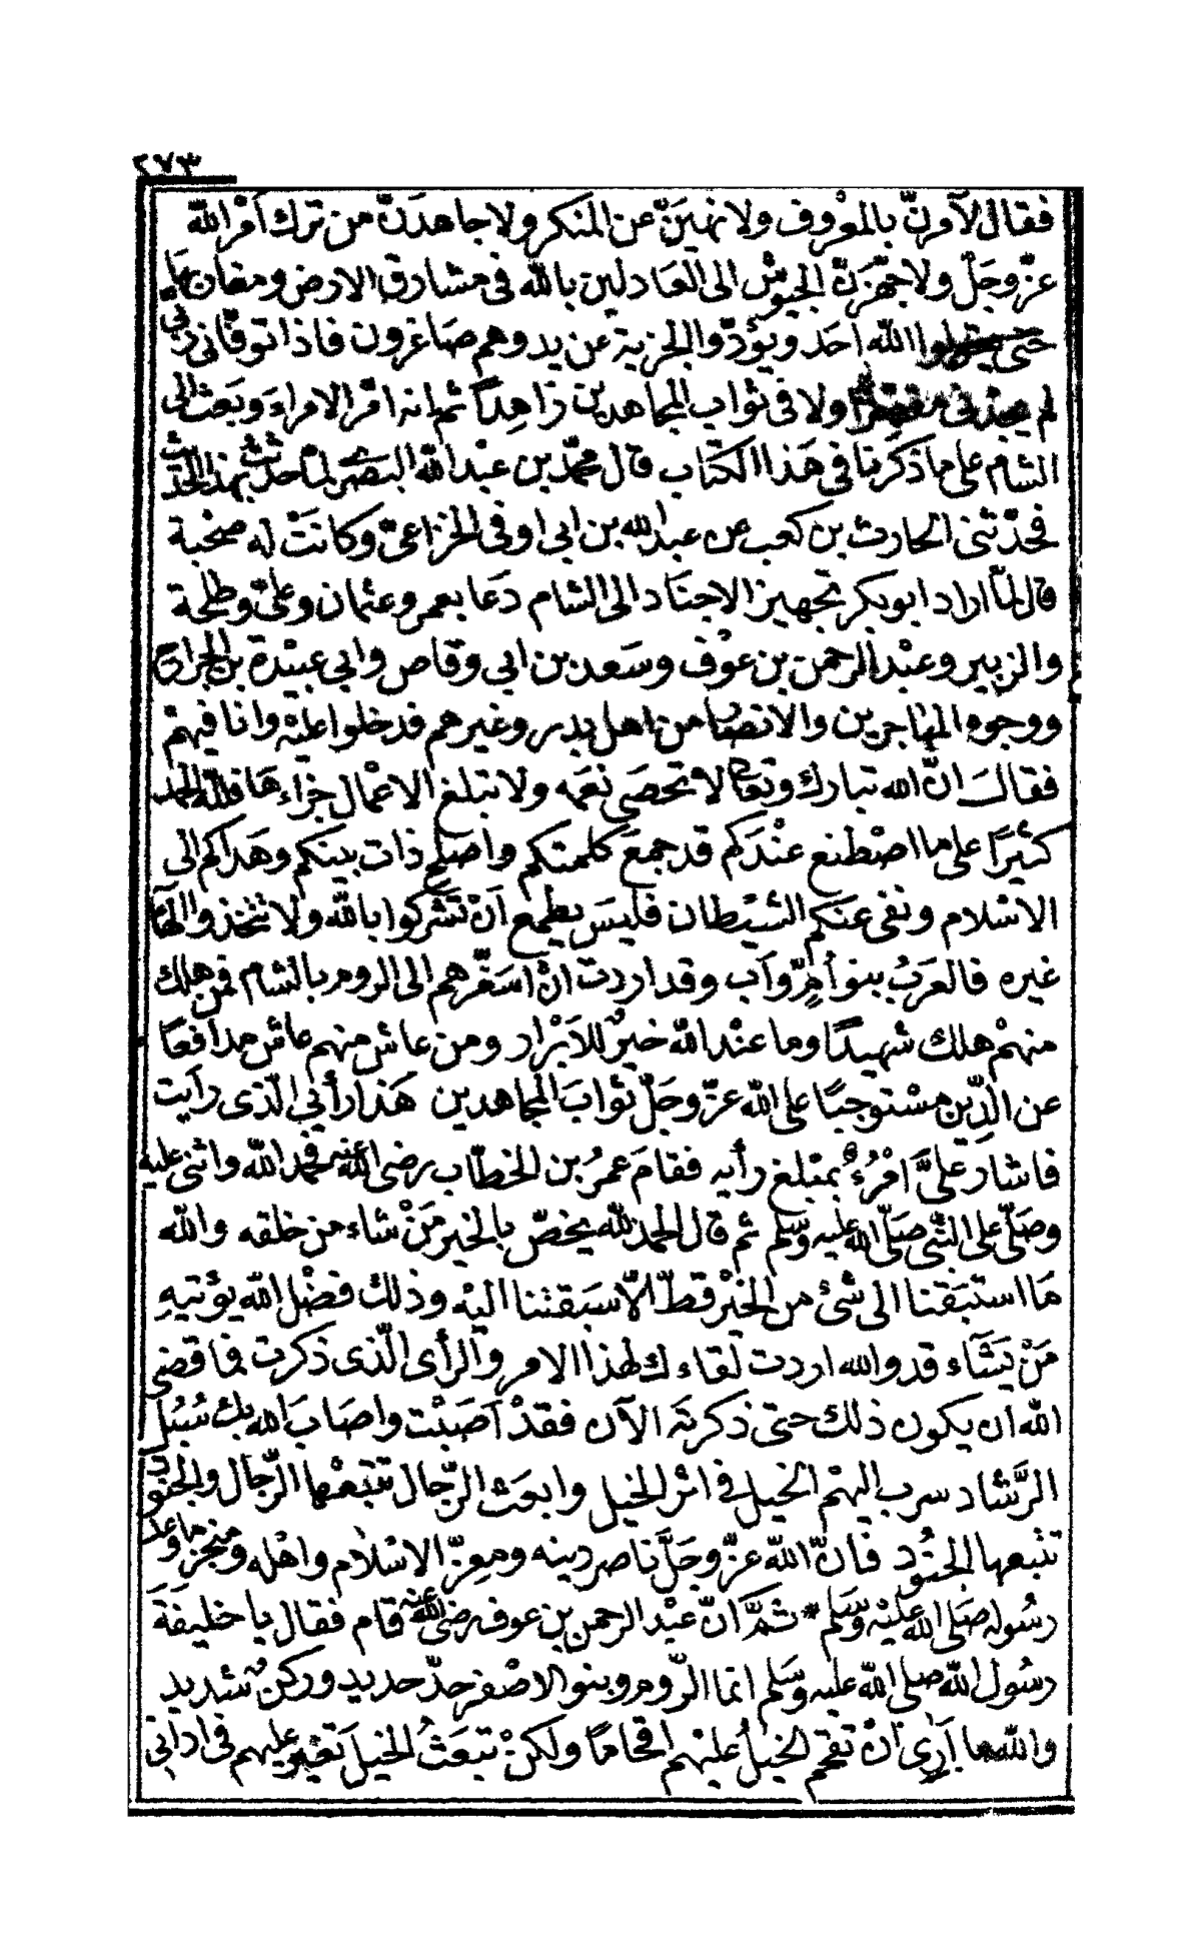 ٢٧٣
فقال لآمرنّ بالمعْروف ولانهينّ عن المنكر ولاجاهدَنّ من ترك أمْر الله
عزّ وجلّ ولاجهّزنّ الجيوش الى العَادلين بالله فى مشارق الارض ومغاربها
حتى يقولوا الله احَد ويؤدّوا الجزية عن يد وهم صَاغرون فاذا توفّانى ربى
لم يجدنى ولا فى ثواب المجاهدين زاهِدًا ثم انه امّر الامراءَ وبعَث الى
الشام على ما ذكرنا فى هَذا الكتاب قال محمّد بن عبْد الله البصَرى لماّ حدثت بهذا الحديث
فحدّثنى الحارث بن كعب عن عبد الله بن ابى اوفى الخزاعىّ وكانتْ له صحْبة
قال لماّ اراد ابو بكر تجهيز الاجنَاد الى الشام دَعا بعمر وعثمان وعلىّ وطلحة
والزبير وعبْد الرحمن بن عوْف وسَعد بن ابى وقاص وابى عبيْدة بن الجراح
ووجوه المهاجرين والانصار من اهل بدر وغيرهم فدخلوا عليْه وانا فيهمْ
فقالَ انّ الله تبارك وتعالى لا تحصَى نعَمه ولا تبلغ الاعْمال جزاءهَا فلله الحمد
كثيرًا على ما اصْطنع عنْدَكم قد جمعَ كلمتكم واصلح ذات بينكم وهَداكم الى
الاسْلام ونفى عنكم الشيْطان فليسَ يطمع أنْ تشركوا بالله ولا تتخذوا الهًا
غيره فالعَربُ بنو أمٍّ وأب وقد اردت انْ اسَفّرهم الى الروم بالشام فمن هلك
منهمْ هلك شهيدًا وما عنْد الله خيرٌ للأبْرار ومن عاش منهم عاش مدافعًا
عن الدِّين مسْتوجبًا على الله عزّ وجَلّ ثوابَ المجاهدين هَذا رأيي الّذى رأيت
فاشار علىَّ امْرُءٌ بمبْلغ رأيه فقامَ عمرُ بن الخطّاب رضى الله عنه فحمد الله واثنى عليه
وصَلّى على النّبى صَلّى الله عليه وسّلم ثم قال الحمد لله يخصّ بالخير مَنْ شاء من خلقه والله
مَا استبَقنا الى شئ من الخيْر قطّ الّا سَبقتنا اليْه وذلك فضْل الله يؤتيهِ
مَنْ يَشَآء قد والله اردت لقاءك لهذا الامر والرأى الّذى ذكرت فما قضى
الله ان يكون ذلك حتى ذكرتَه الآن فقدْ أصَبْت واصَابَ الله بك سُبُل
الرَّشاد سرب اليهمْ الخيل فى اثر الخيل وابعَث الرّجال تتبعْها الرّجال والجنود
تتبعها الجنُود فانّ الله عزّ وجَلَّ ناصر دينه ومعِزّ الاسْلام واهْله ومنجز ما وعد
رسُوله صَلى الله عَليْه وسَلم * ثمَّ انّ عبْد الرحمن بن عوف رضى الله عنه قام فقال يا خليفَةَ
رسُول الله صلى الله عليه وسَلم انما الرّوم وبنو الاصْفر حدّ حديد وركنٌ شديد
والله ما أرى انْ تقحم الخيلُ عليْهم اقحامًا ولكنْ تبعَثُ الخيل تغير عليهم فى ادانى